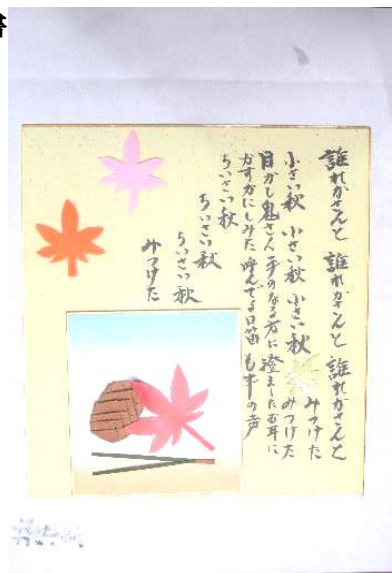 誰れかさんと 誰れかさんと 誰れかさんと
みつけた
小さい秋 小さい秋 小さい秋
みつけた
目かくし鬼さん 手のなる方に 澄ましたお耳に
かすかにしみた 呼んでる口笛 もずの声
ちいさい秋
ちいさい秋
ちいさい秋
みつけた